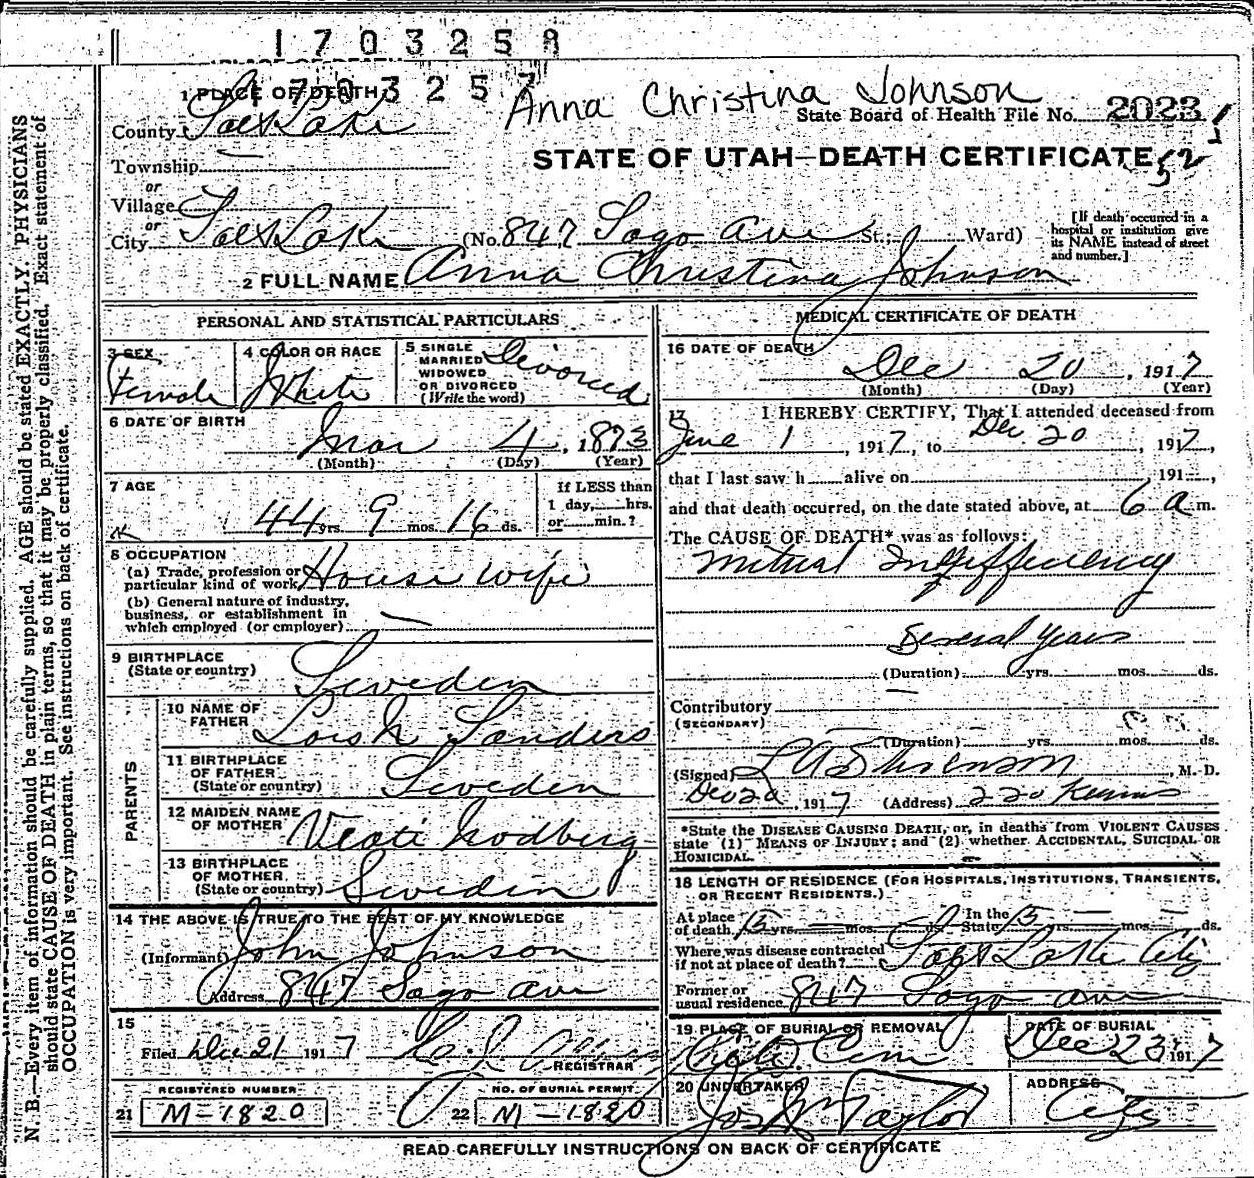 1703258
1703257
Anna Christina Johnson
1 PLACE OF DEATH
State Board of Health File No. 2023
County Salt Lake
52
STATE OF UTAH—DEATH CERTIFICATE
Township —
or
Village
or
City Salt Lake (No. 847 Sago Ave St.; Ward)
[If death occurred in a hospital or institution give its NAME instead of street and number.]
2 FULL NAME Anna Christina Johnson
PERSONAL AND STATISTICAL PARTICULARS
3 SEX
Female
4 COLOR OR RACE
White
5 SINGLE
MARRIED
WIDOWED
OR DIVORCED
(Write the word)
Divorced
6 DATE OF BIRTH
Mar 4, 1873
(Month) (Day) (Year)
7 AGE
44 yrs 9 mos. 16 ds.
If LESS than
1 day, hrs.
or min.?
8 OCCUPATION
(a) Trade, profession or
particular kind of work House wife
(b) General nature of industry,
business, or establishment in
which employed (or employer) —
9 BIRTHPLACE
(State or country) Sweden
PARENTS
10 NAME OF
FATHER Sanders
11 BIRTHPLACE
OF FATHER
(State or country) Sweden
12 MAIDEN NAME
OF MOTHER
13 BIRTHPLACE
OF MOTHER
(State or country) Sweden
14 THE ABOVE IS TRUE TO THE BEST OF MY KNOWLEDGE
(Informant) John Johnson
Address 847 Sago Ave
15
Filed Dec 21 1917
REGISTRAR
REGISTERED NUMBER
21 M-1820
NO. OF BURIAL PERMIT
22 M-1820
MEDICAL CERTIFICATE OF DEATH
16 DATE OF DEATH
Dec 20, 1917
(Month) (Day) (Year)
17 I HEREBY CERTIFY, That I attended deceased from
June 1, 1917, to Dec. 20, 1917,
that I last saw h alive on 191 ,
and that death occurred, on the date stated above, at 6 a m.
The CAUSE OF DEATH* was as follows:
Mitral
Several Years
(Duration) yrs. mos. ds.
Contributory —
(SECONDARY)
(Duration) yrs. mos. ds.
(Signed) , M. D.
Dec 20, 1917 (Address) 220 Kearns
*State the DISEASE CAUSING DEATH, or, in deaths from VIOLENT CAUSES
state (1) MEANS OF INJURY; and (2) whether ACCIDENTAL, SUICIDAL or
HOMICIDAL.
18 LENGTH OF RESIDENCE (FOR HOSPITALS, INSTITUTIONS, TRANSIENTS,
OR RECENT RESIDENTS.)
At place of death 15 yrs. — mos. ds. In the State 15 yrs. — mos. — ds.
Where was disease contracted
if not at place of death? Salt Lake City
Former or
usual residence 847 Sago Ave
19 PLACE OF BURIAL OR REMOVAL
City Cem
DATE OF BURIAL
Dec 23 1917
20 UNDERTAKER
Jos Wm Taylor
ADDRESS
City
READ CAREFULLY INSTRUCTIONS ON BACK OF CERTIFICATE
N. B.—Every item of information should be carefully supplied. AGE should be stated EXACTLY. PHYSICIANS
should state CAUSE OF DEATH in plain terms, so that it may be properly classified. Exact statement of
OCCUPATION is very important. See instructions on back of certificate.